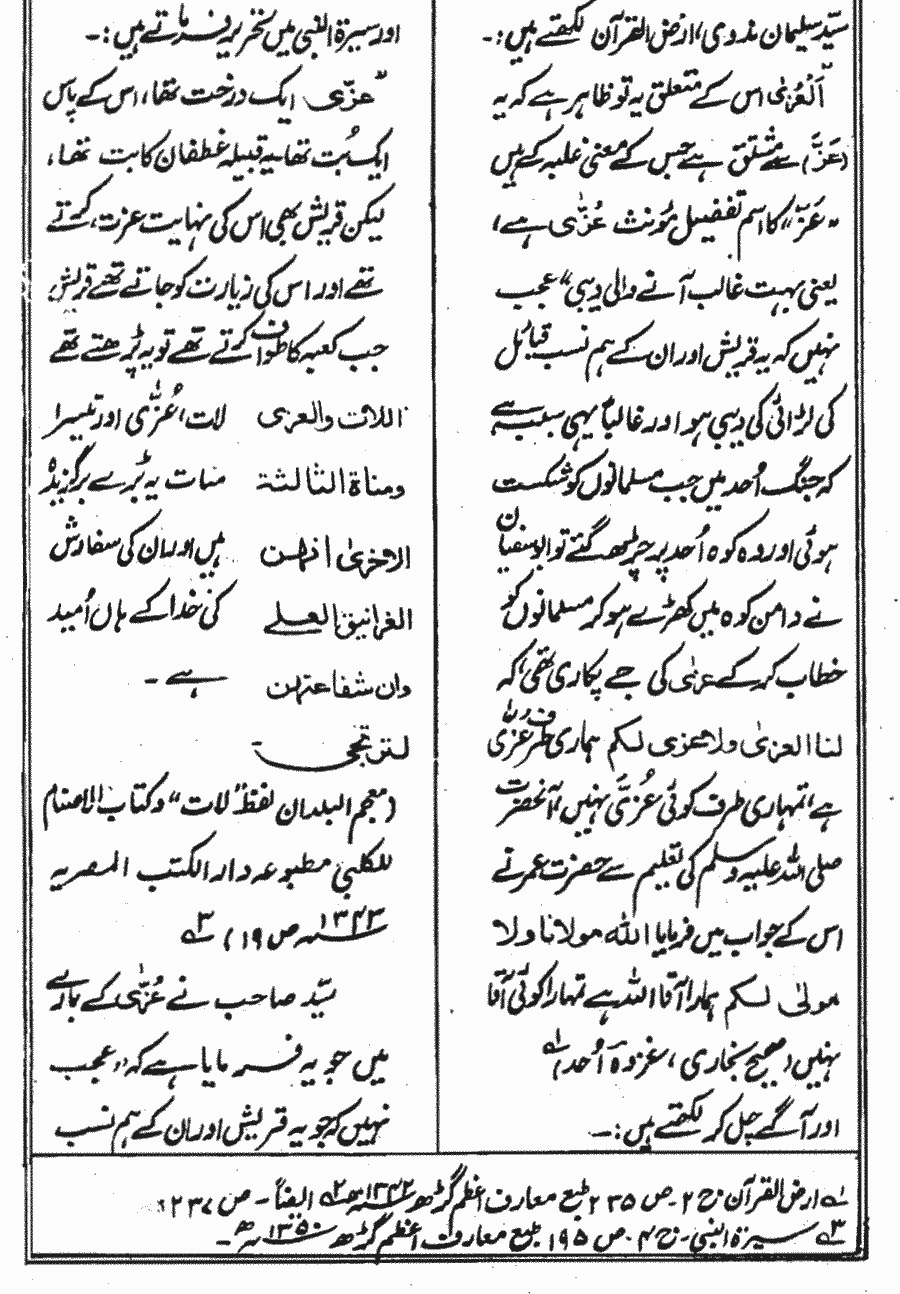 سیّد سلیمان ندوی، ارض القرآن لکھتے ہیں:۔
"اَلْعُزیٰ اس کے متعلق یہ تو ظاہر ہے کہ یہ
(عَزَّ) سے مشتق ہے جس کے معنی غلبہ کے ہیں
"عَزّ" کا اسم تفضیل مؤنث عُزّٰی ہے،
یعنی بہت غالب آنے والی دیبی "عجب
نہیں کہ یہ قریش اور ان کے ہم نسب قبائل
کی لڑائی کی دیبی ہو اور غالباً یہی سبب ہے
کہ جنگ اُحد میں جب مسلمانوں کو شکست
ہوئی اور وہ کوہ اُحد پر چڑھ گئے تو ابوسفیان
نے دامن کوہ میں کھڑے ہو کر مسلمانوں کو
خطاب کرکے عزیٰ کی جے پکاری تھی، کہ
لنا العزیٰ ولا عزی لکم ہماری طرف عُزّٰی
ہے، تمہاری طرف کوئی عُزیّٰ نہیں، آنحضرت
صلی اللہ علیہ وسلم کی تعلیم سے حضرت عمر نے
اس کے جواب میں فرمایا اللہ مولانا ولا
مولیٰ لکم ہمارا آقا اللہ ہے تمہارا کوئی آقا
نہیں (صحیح بخاری، غزوہ اُحد) ؂۱
اور آگے چل کر لکھتے ہیں:۔
اور سیرۃ النبی میں تحریر فرماتے ہیں:۔
"عزّی ایک درخت تھا، اس کے پاس
ایک بُت تھا یہ قبیلہ غطفان کا بت تھا،
لیکن قریش بھی اس کی نہایت عزت کرتے
تھے اور اس کی زیارت کو جاتے تھے قریش
جب کعبہ کا طواف کرتے تھے تو یہ پڑھتے تھے
اللات والعزی لات، عُزّٰی اور تیسرا
ومناۃ الثالثۃ منات یہ بڑے برگزیدہ
الاخریٰ انھن ہیں اور ان کی سفارش
الغرانیق العلے کی خدا کے ہاں اُمید
وان شفاعتھن ہے۔
لترتجی۔
(معجم البلدان لفظ "لات" و کتاب الاصنام
للکلبی مطبوعہ دار الکتب المصریہ
۱۳۴۳ھ ص ۱۹) ؂۳
سیّد صاحب نے عُزّٰی کے بارے
میں جو یہ فرمایا ہے کہ "عجب
نہیں کہ جو یہ قریش اور ان کے ہم نسب
؂۱ ارض القرآن ج ۲۔ ص ۲۳۵ طبع معارف اعظم گڑھ ۱۳۴۲ھ ؂۲ ایضاً۔ ص ۲۳۷
؂۳ سیرۃ النبی۔ ج ۴۔ ص ۱۹۵ طبع معارف اعظم گڑھ ۱۳۵۰ھ۔